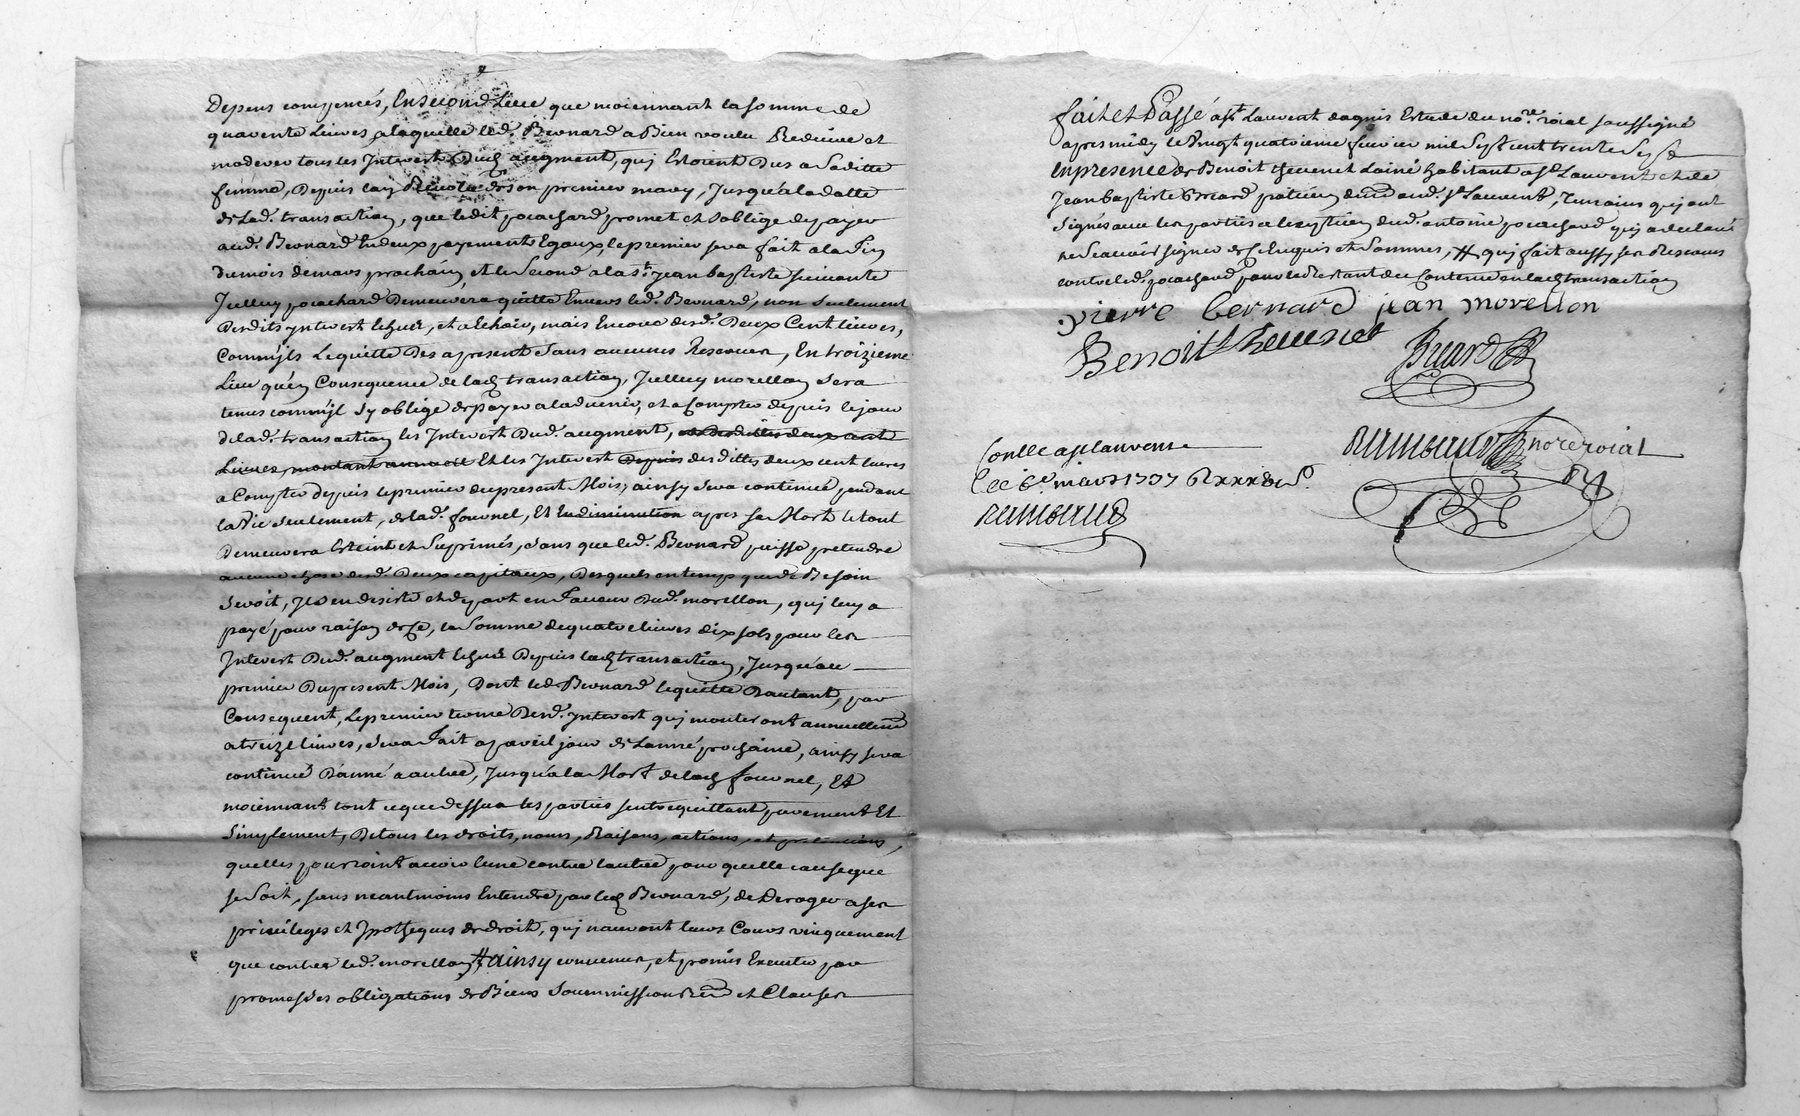 Depens compencés, En second Lieu que moiennant la somme de
quarente Livres, a laquelle led. Bernard a Bien voulu Reduire et
moderer tous les Interest Dud augment, qui Estoient Dus a Saditte
femme, Depuis lay de son premier mary, Jusqu'a la datte
de Lad. transaction, que ledit pocachard promet et soblige de payer
aud. Bernard En deux payements Egaux, le premier sera fait a la fin
du mois de mars prochain, et le Second a la st. jean baptiste suivante
Jceluy pocachard Demeurera quitte Envers led. Bernard, non seulement
Desdits jnterest Echus, et a Echoir, mais Encore desd. Deux Cent livres,
Comm'jls Le quitte Des apresent sans aucunes Reserves, En troizieme
Lieu qu'en Consequence de lad transaction, Jceluy morellon Sera
tenus comm'jl s'y oblige de payer a laduenir, et a Compter depuis le jour
de lad. transaction les Interest Dud. augment, et des dittes deux cent
Livres, montant annuell Et les Interest Depuis des dittes deux cent livres
a Compter depuis le premier du present Mois, ainsy sera continué pendant
la vie seulement, de lad. fournel, Et En diminution apres sa Mort le tout
Demeurera Esteint et Suprimés, sans que led. Bernard puisse pretendre
aucune chose desd. Deux capitaux, Desquels en temps que de Besoin
seroit, Jl s'en desiste et depart en faveur Dud. morellon, qui luy a
payé pour raison de Ce, la Somme de quatre livres dix sols pour les
Interest Dud. augment Echus Depuis lad transaction, Jusqu'au
premier Du present Mois, Dont led Bernard le quitte Dautant, par
Consequent, Le premier terme Desd. jnterest qui monteront annuellemt
a treize livres, sera fait a pareil jour de Lanné prochaine, ainsy sera
continué D'anné a autre, Jusqu'a la Mort de lad fournel, Et
moiennant tout ce que dessus les parties sentrequittent purement Et
Simplement, De tous les droits, noms, Raisons, actions, et pretencions,
quelles pourroint avoir lune contre lautre pour quelle cause que
se soit, sans neantmoins Entendre par led Bernard, de Deroger a ses
privileges et Jpotheques de droit, qui nauront leurs Cours vniquement
que contre led. morellon, # ainsy convenu, et promis Executer par
promesses obligations de Biens Soummissions Rëon et Clauses
fait et Passé a st. Laurent dagnis Estude du nore. roial soussigné
apres midy le Vingt quatrieme fevrier mil Sept cent trente Sept
En presence de Benoit thevenet Lainé habitant a st. Laurent et de
Jean baptiste Briard praticien dud. st. Laurent, Temoins qui ont
signés avec les parties a lexception dud. antoine pocachard qui a declaré
ne Scavoir signer de Ce Enquis et Sommés, # qui fait aussy ses Reserves
contre led. pocachard pour le Restant du Contenu en lad transaction
pierre bernard jean morellon
Benoit thevenet
Briard
nore roial
Conlle a st laurent
Le 6e. mars 1737